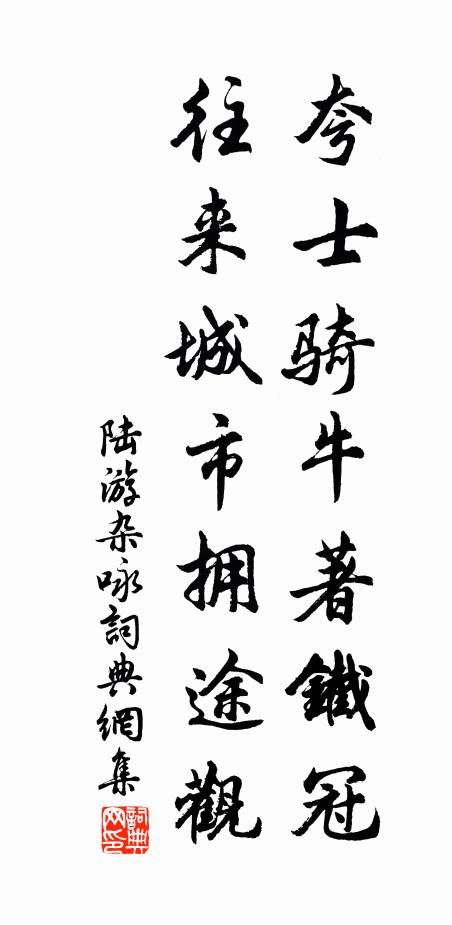 夸士骑牛著鐵冠
往来城市拥途觀
陆游杂咏詞典網集
詞典网印